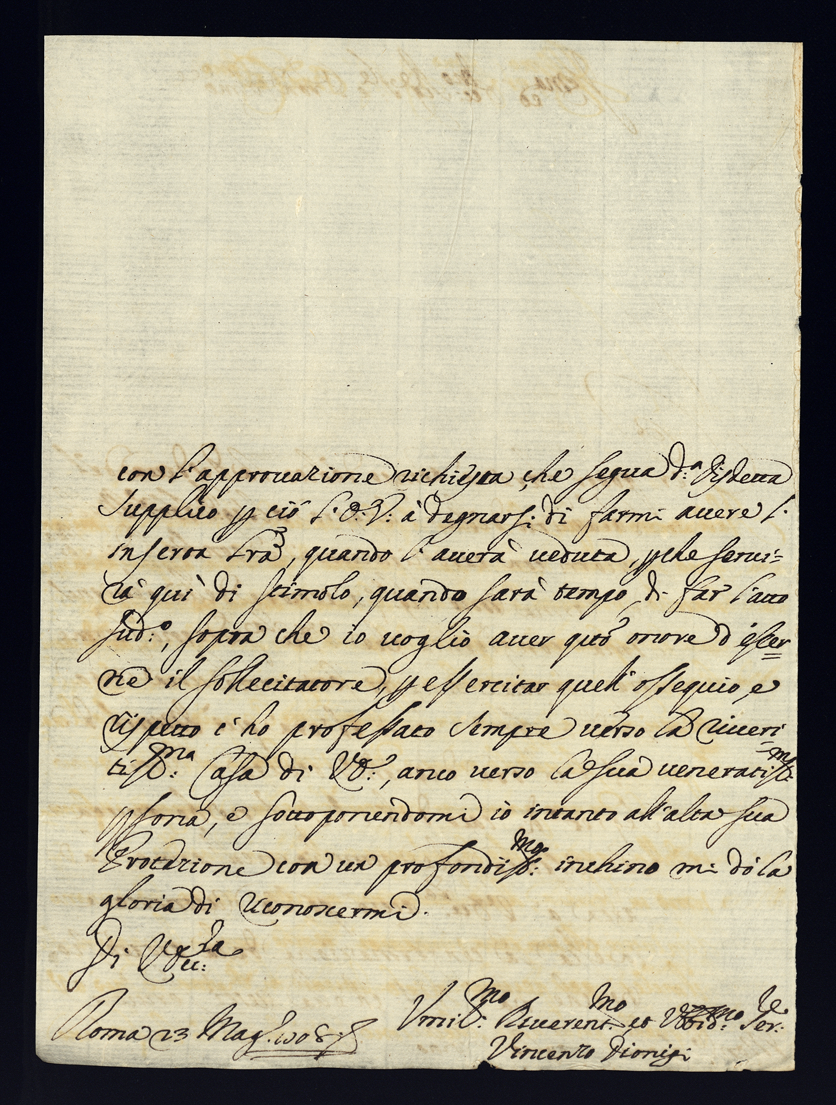 con l'approuazione richiesta che segua d.ª disdetta
Supplico p ciò l'E.V: à degnarsi di farmi auere l'
inserta lrã, quando l'auerà ueduta, p che serui-
rà qui di stimolo, quando sarà tempo di far l'atto
sud.º, sopra che io uoglio auer qũto onore d'esser-
ne il sollecitatore, p essercitar quell'ossequio, e
rispetto c'hò professato sempre uerso la riueri
tiss.ma Casa di V.E:, anco uerso la sua ueneratiss.ma
psona, e sottoponendomi io intanto all'alta sua
Protezione con un profondiss.mo inchino mi dò la
gloria di riconoscermi.
Di V. Ecc.za
Roma 23 Mag.
Umil.mo Riuerent.mo et Obbid.mo Ser.re
Vincenzo Dionigi